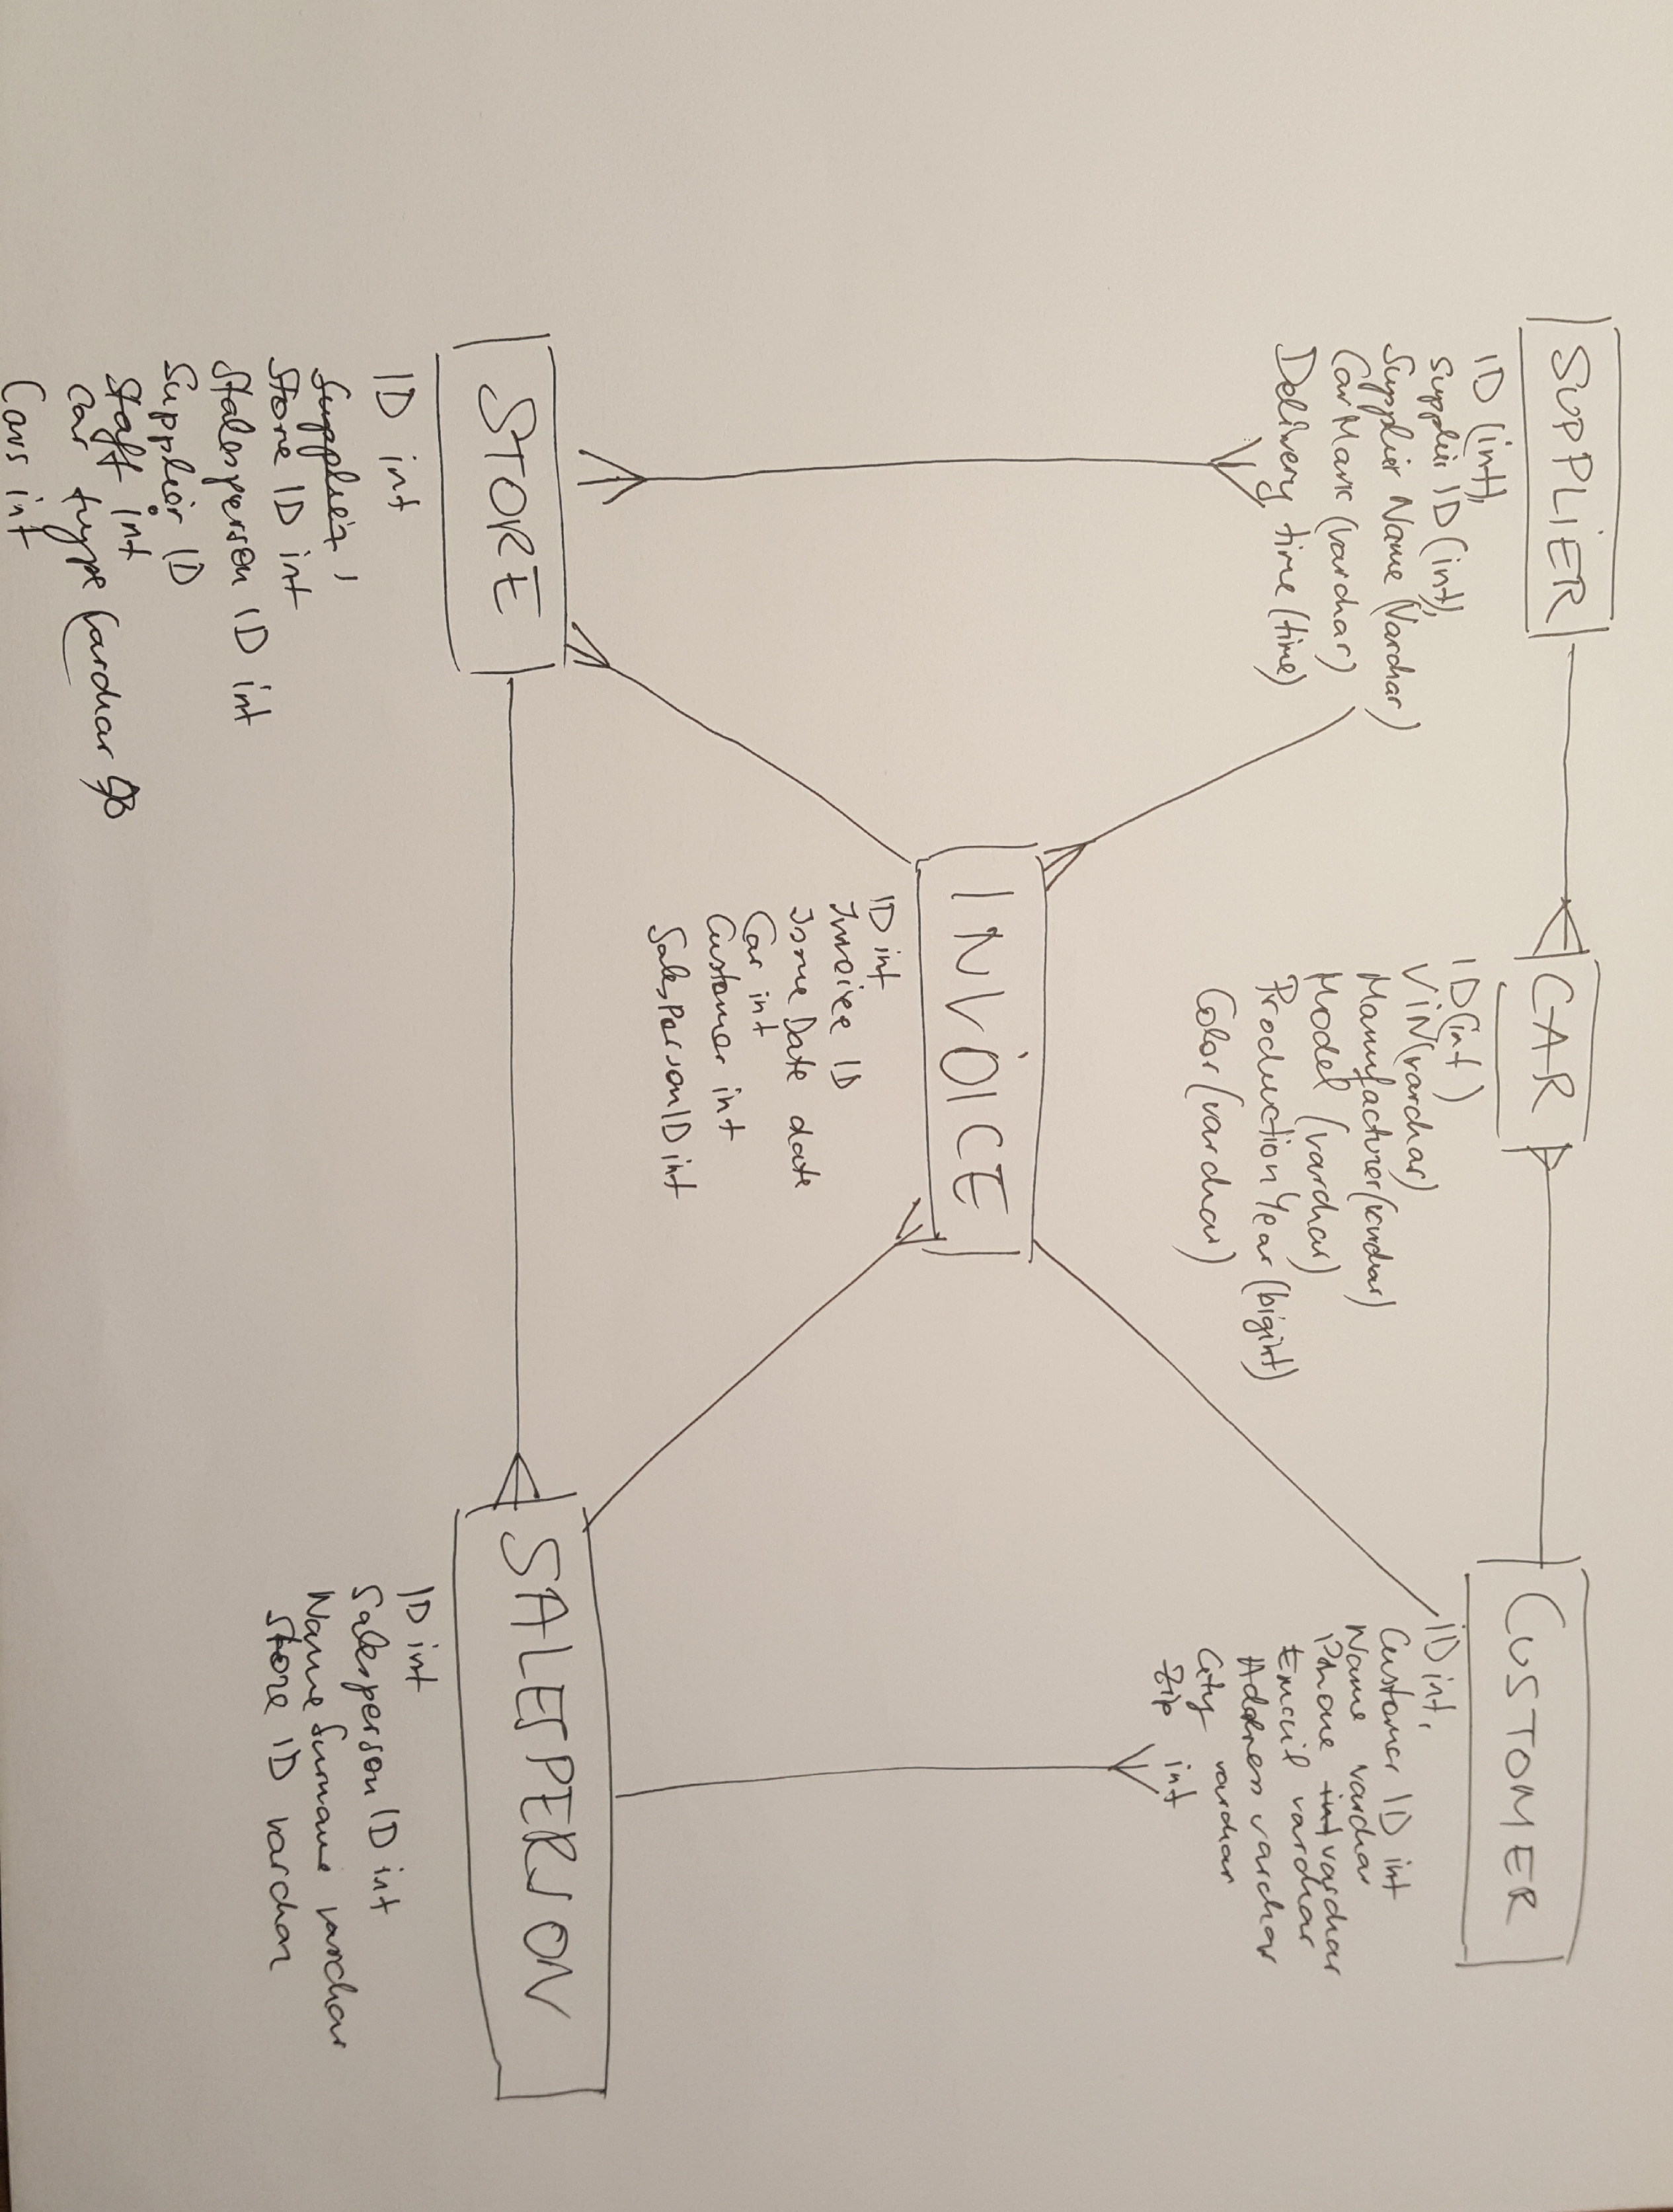 SUPPLIER
ID (int),
Supplier ID (int),
Supplier Name (Varchar)
Car Mark (varchar)
Delivery time (time)
CAR
ID (int)
VIN (varchar)
Manufacturer (varchar)
Model (varchar)
Production Year (bigint)
Color (varchar)
CUSTOMER
ID int,
Customer ID int
Name varchar
Phone int varchar
Email varchar
Address varchar
City varchar
Zip int
INVOICE
ID int
Invoice ID
Issue Date date
Car int
Customer int
SalesPersonID int
STORE
ID int
Supplier,
Store ID int
Stalesperson ID int
Supplier ID
Staff int
Car type (varchar
Cars int
SALESPERSON
ID int
Salesperson ID int
Name Surname varchar
Store ID varchar